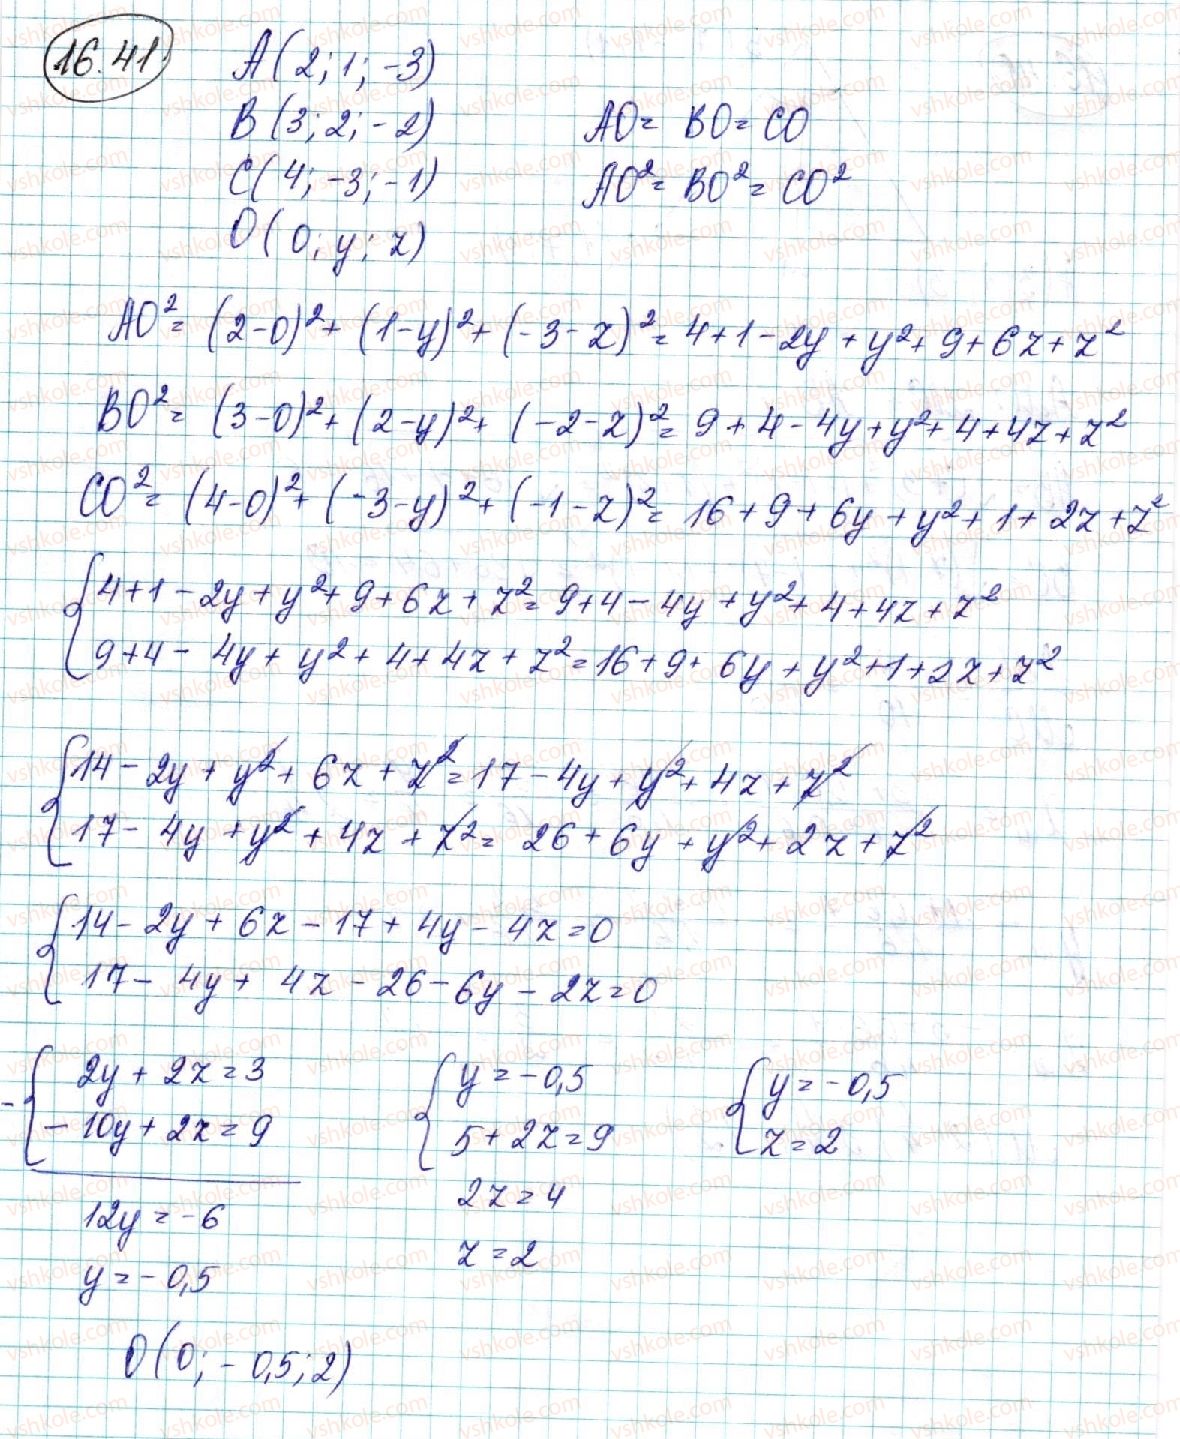 16.41
A(2; 1; -3)
B(3; 2; -2) AO = BO = CO
C(4; -3; -1) AO² = BO² = CO²
O(0; y; z)
AO² = (2-0)² + (1-y)² + (-3-z)² = 4+1-2y+y²+9+6z+z²
BO² = (3-0)² + (2-y)² + (-2-z)² = 9+4-4y+y²+4+4z+z²
CO² = (4-0)² + (-3-y)² + (-1-z)² = 16+9+6y+y²+1+2z+z²
{ 4+1-2y+y²+9+6z+z² = 9+4-4y+y²+4+4z+z²
9+4-4y+y²+4+4z+z² = 16+9+6y+y²+1+2z+z²
{ 14-2y+y²+6z+z² = 17-4y+y²+4z+z²
17-4y+y²+4z+z² = 26+6y+y²+2z+z²
{ 14-2y+6z-17+4y-4z=0
17-4y+4z-26-6y-2z=0
- { 2y+2z=3 { y=-0,5 { y=-0,5
-10y+2z=9 5+2z=9 z=2
12y=-6 2z=4
y=-0,5 z=2
O(0; -0,5; 2)
vshkole.com